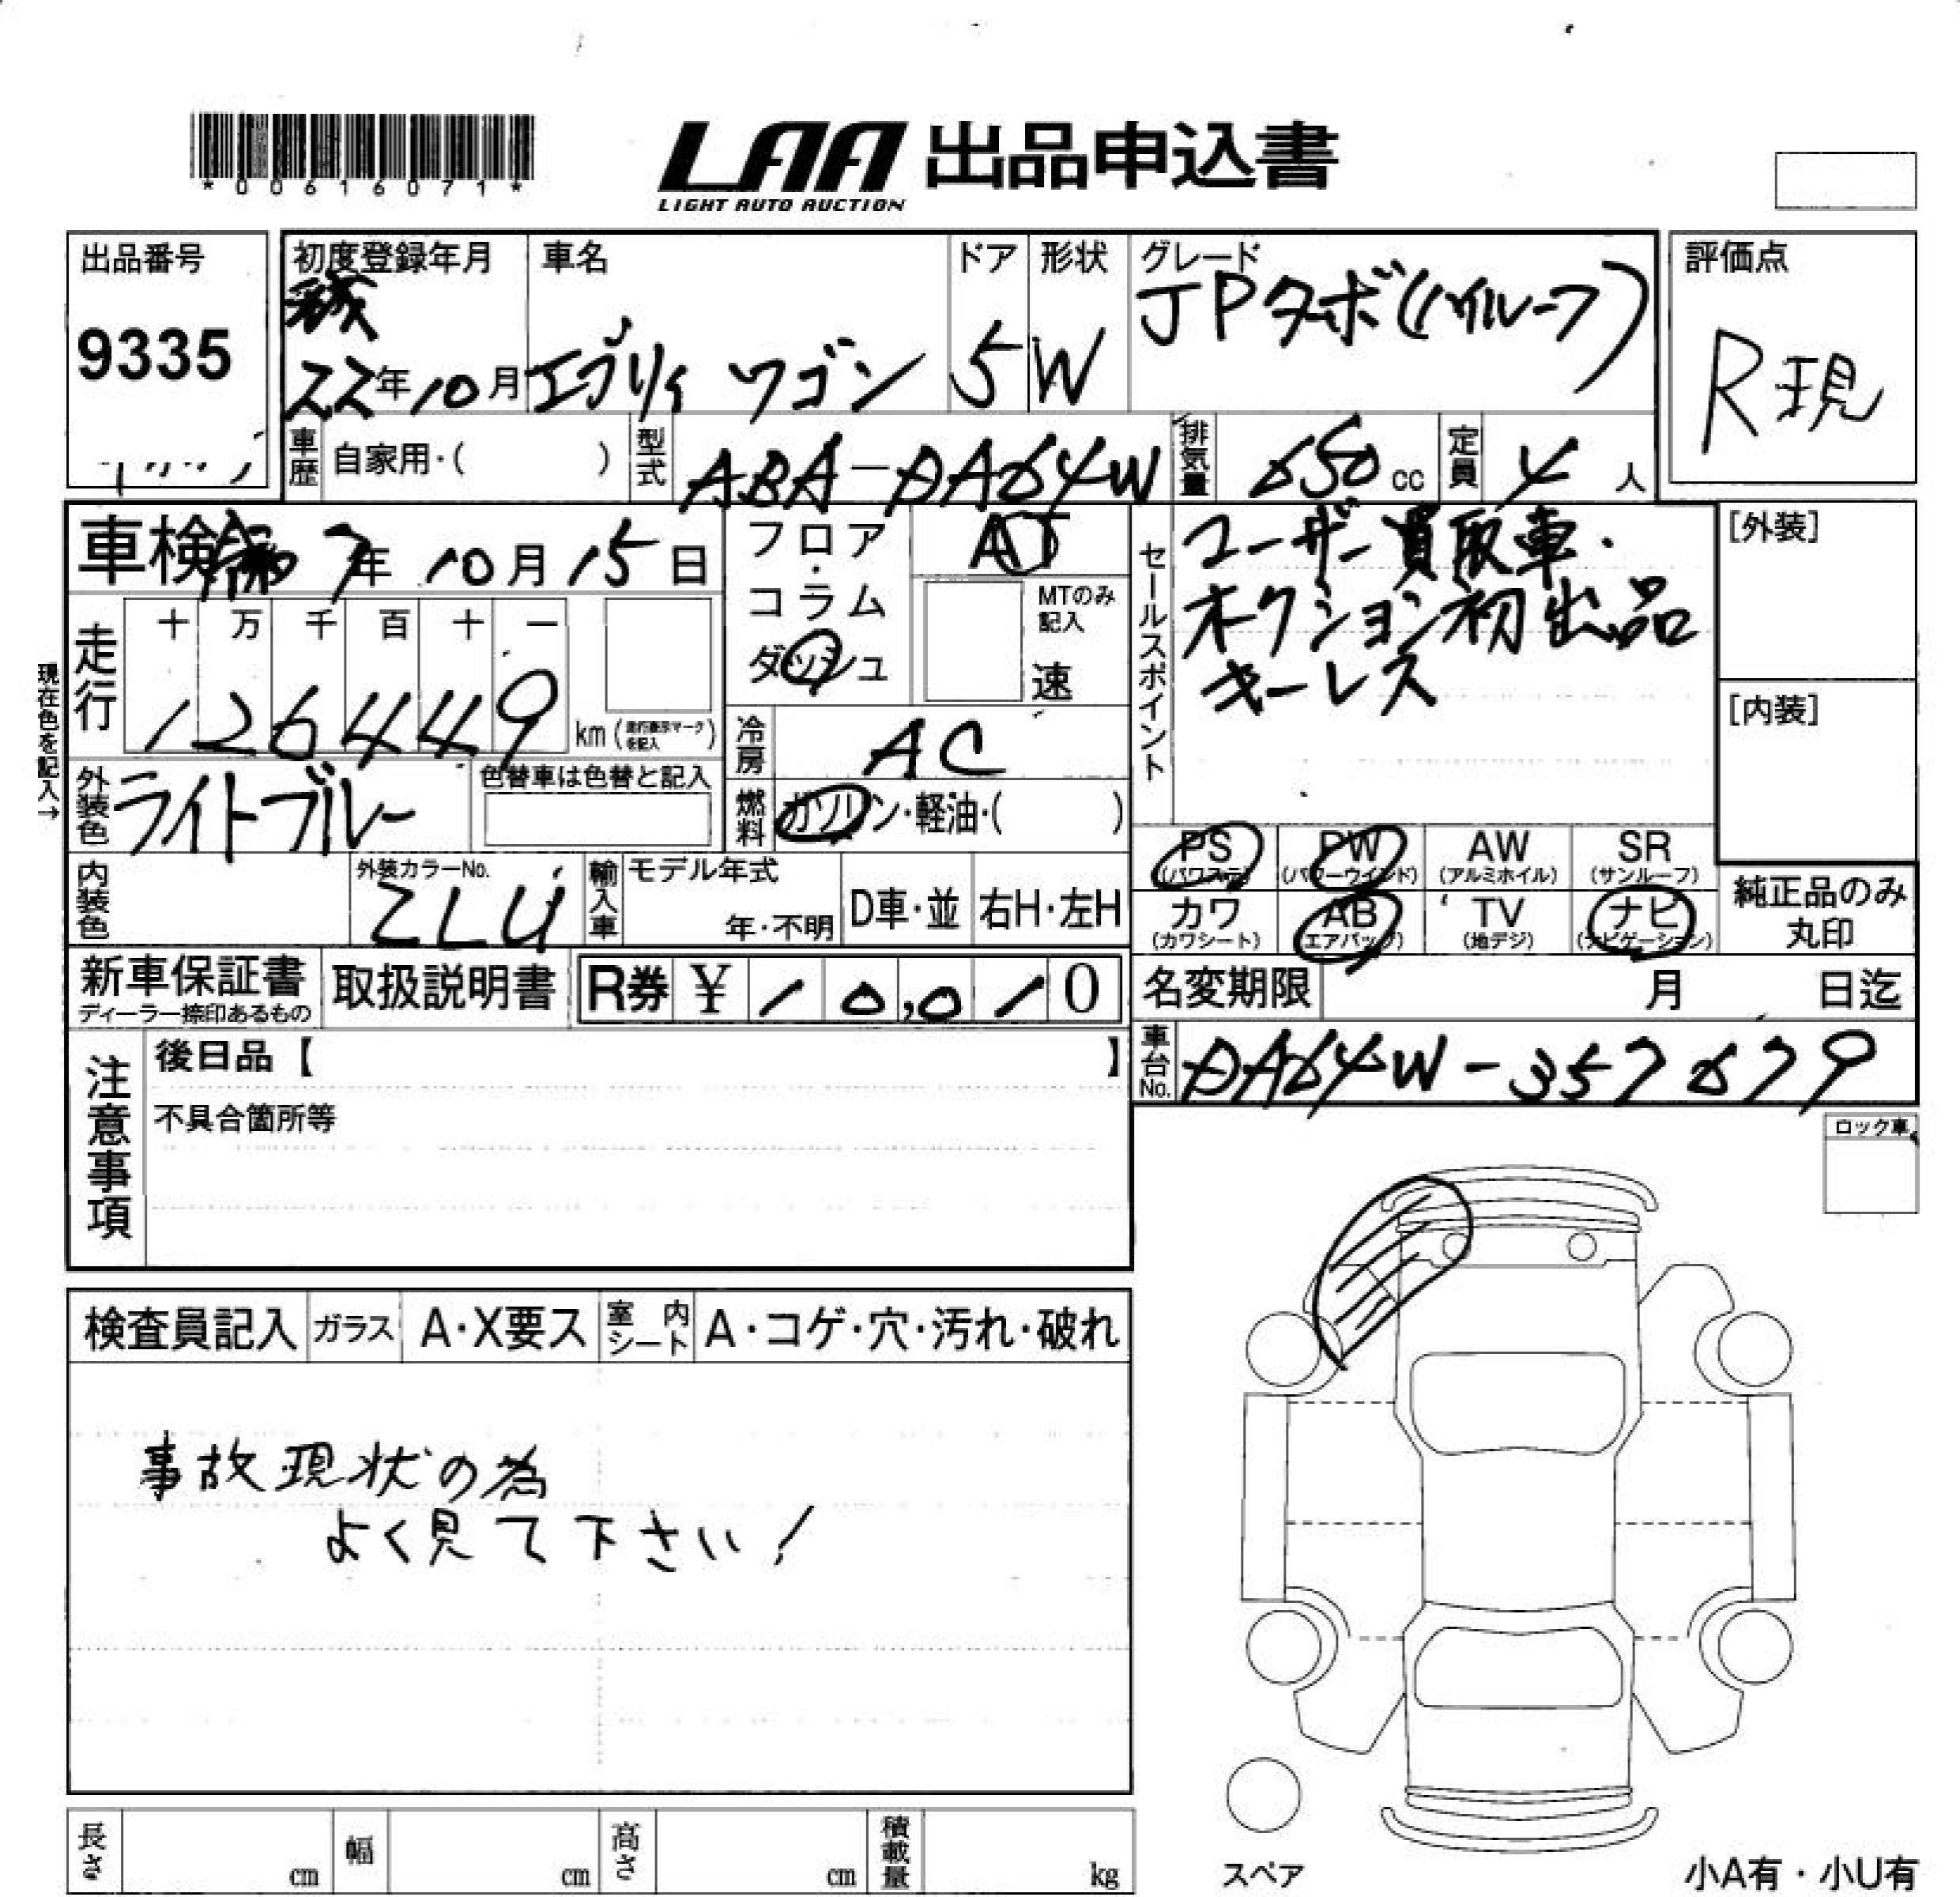 *00616071*
LAA 出品申込書
LIGHT AUTO AUCTION
出品番号
9335
初度登録年月
平成
22年10月
車名
エブリィ ワゴン
ドア
5
形状
W
グレード
JPターボ(ハイルーフ)
評価点
R現
車歴
自家用・( )
型式
ABA-DA64W
排気量
650cc
定員
4人
車検 令和7年10月15日
フロア・コラム
ダッシュ
AT
MTのみ記入
速
セールスポイント
ユーザー買取車.
オークション初出品
キーレス
[外装]
[内装]
現在色を記入→
走行
十 万 千 百 十 一
126449
km(走行表示マークを記入)
冷房
AC
外装色
ライトブルー
色替車は色替と記入
燃料
ガソリン・軽油・( )
PS (パワステ)
PW (パワーウインド)
AW (アルミホイル)
SR (サンルーフ)
カワ (カワシート)
AB (エアバッグ)
TV (地デジ)
ナビ (ナビゲーション)
純正品のみ
丸印
内装色
外装カラーNo.
ZLU
輸入車
モデル年式
年・不明
D車・並
右H・左H
新車保証書
ディーラー捺印あるもの
取扱説明書
R券 ¥10,010
名変期限 月 日迄
車台No.
DA64W-357679
注意事項
後日品【 】
不具合箇所等
ロック車
検査員記入
ガラス A・X要ス
室内シート A・コゲ・穴・汚れ・破れ
事故現状の為
よく見て下さい!
長さ cm
幅 cm
高さ cm
積載量 kg
スペア
小A有・小U有